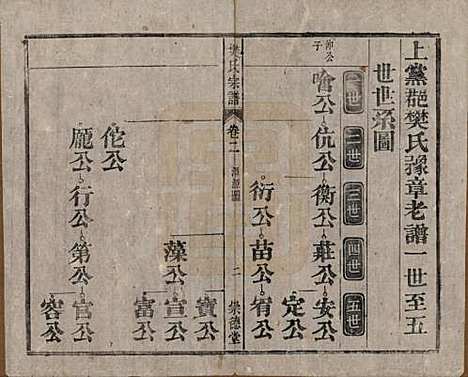 上黨郡樊氏豫章老譜一世至五
世世系圖
一世 二世 三世 四世 五世
仲公子
噲公 伉公 衡公 莊公 安公
定公
衍公 苗公 宥公
樊氏宗譜 卷二 源流圖 二 崇德堂
寶公
藻公 宣公
富公
佗公
龐公 行公 第公 官公
容公